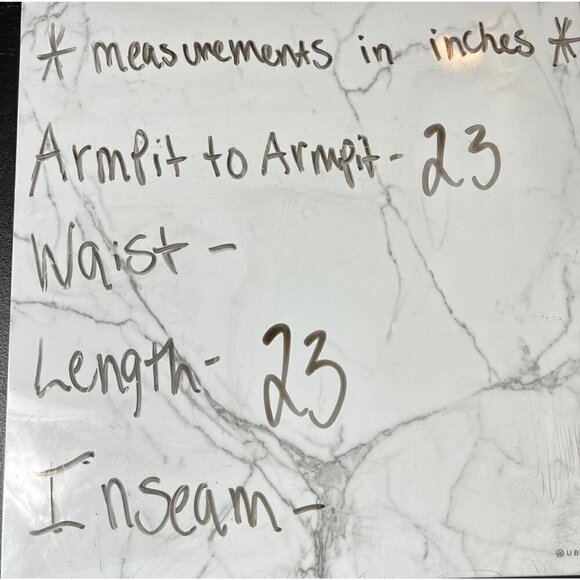 * measurements in inches *
Armpit to Armpit - 23
Waist -
Length - 23
Inseam -